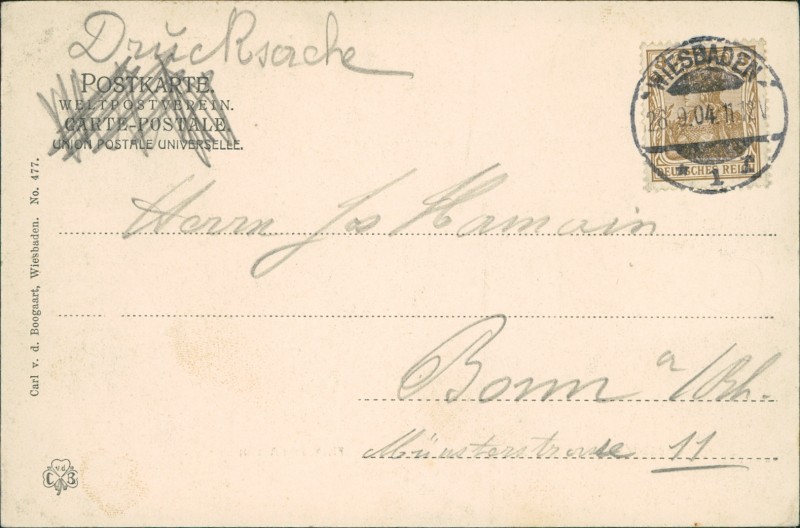 Drucksache
POSTKARTE.
WELTPOSTVEREIN.
CARTE-POSTALE.
UNION POSTALE UNIVERSELLE.
WIESBADEN
9.04.11-12V
* 1 f
DEUTSCHES REICH
Herrn Jos Hamoin
Bonn a/Rh.
Münsterstrasse 11
Carl v. d. Boogaart, Wiesbaden. No. 477.
C vd B